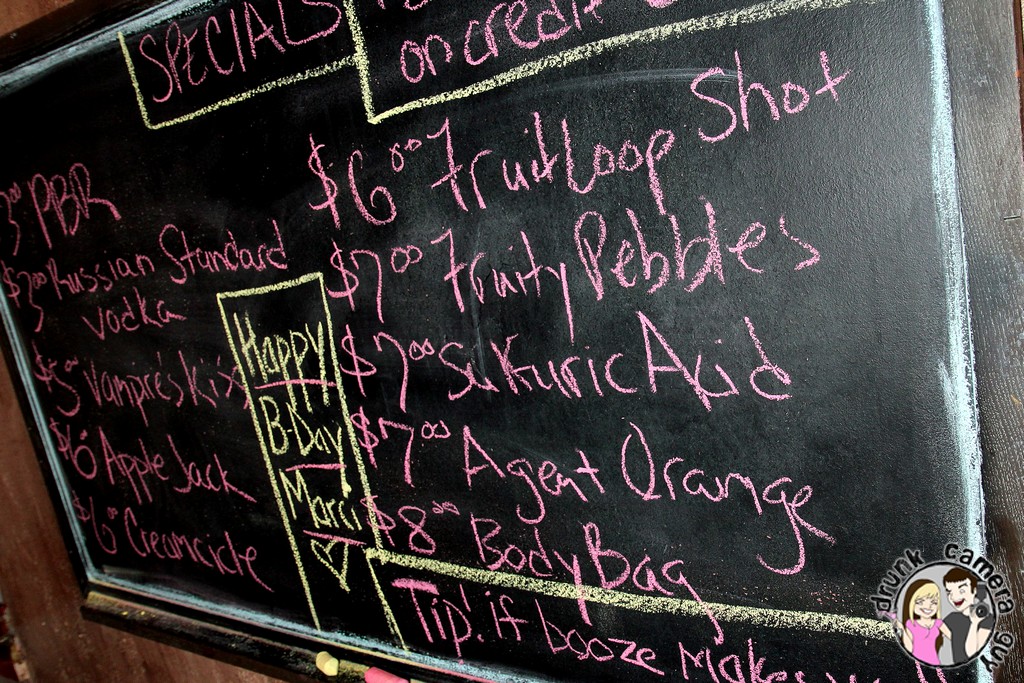 SPECIALS
on credit
3⁰⁰ PBR
$3⁰⁰ Russian Standard
vodka
$5⁰⁰ vampire's kiss
$6 Apple Jack
$6⁰⁰ Creamcicle
Happy
B-Day
Marci
$6⁰⁰ Fruit Loop Shot
$7⁰⁰ Fruity Pebbles
$7⁰⁰ Sukuric Acid
$7⁰⁰ Agent Orange
$8⁰⁰ Body Bag
Tip! if booze Makes
drunk camera guy